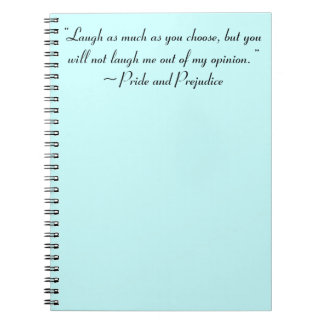 "Laugh as much as you choose, but you
will not laugh me out of my opinion."
~Pride and Prejudice